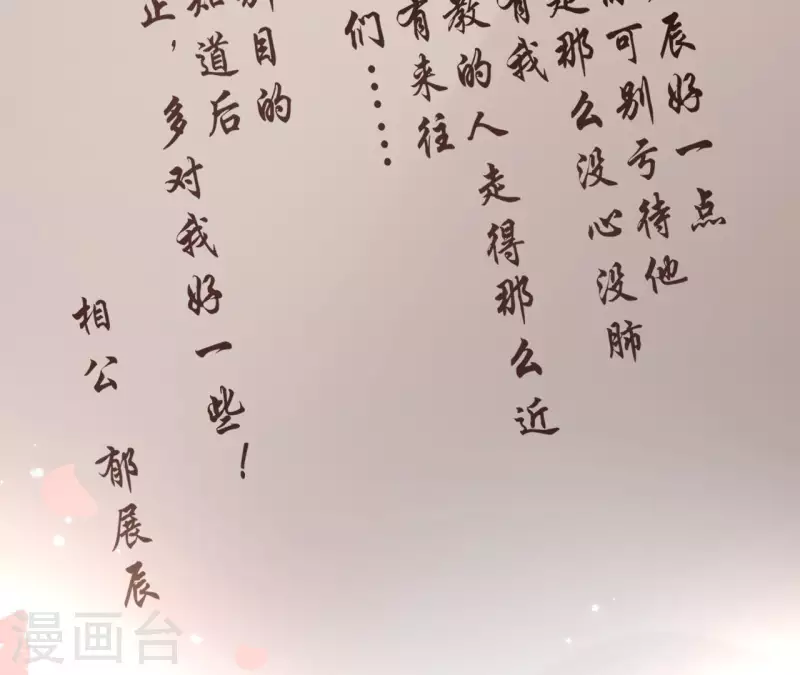 辰好一点
可别亏待他
是那么没心没肺
有我
教的人走得那么近
有来往
们……
别目的
知道后
止，多对我好一些！
相公 郁展辰
漫画台